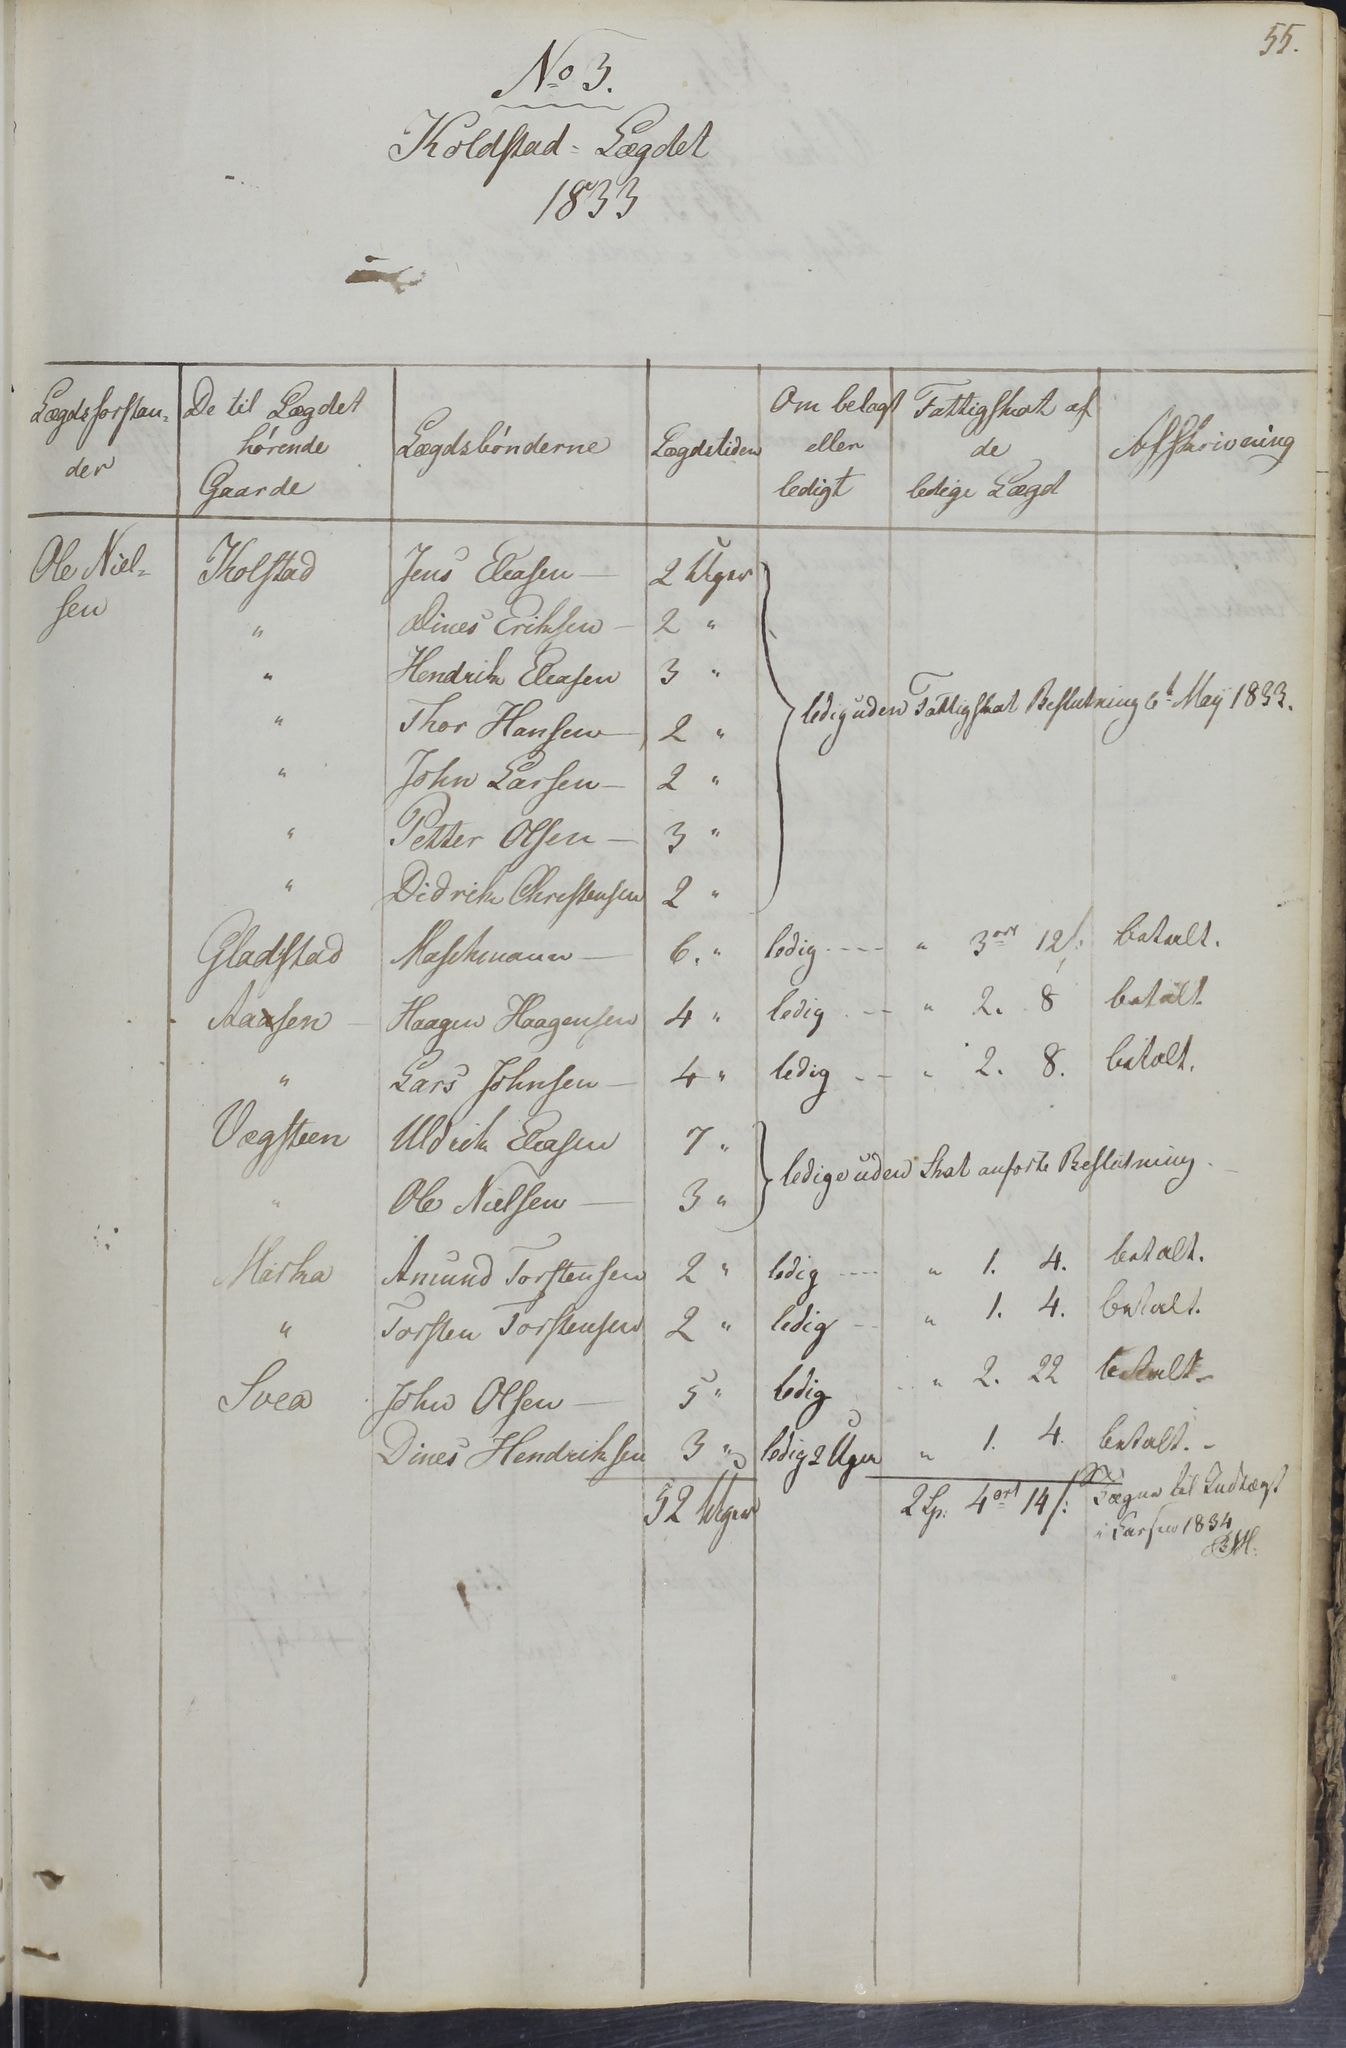 55.
No 3.
Koldstad-Lægdet
1833
Lægdsforstan-
der
De til Lægdet
hörende
Gaarde
Lægdsbönderne
Lægdstiden
Om belagt
eller
ledigt
Fattigskat af
de
ledige Lægd
Afskrivning
Ole Niel-
sen
Kolstad Jens Eleasen — 2 Uger
" Dines Eriksen — 2 "
" Hendrik Eleasen 3 "
ledig uden Fattigskat Beslutning 6t May 1833.
" Thor Hansen — 2 "
" John Larsen — 2 "
" Petter Olsen — 3 "
" Didrik Christensen 2 "
Gladstad Maschmann — 6. " ledig ---- " 3 ort 12/: betalt.
Aassen — Haagen Haagensen 4 " ledig . -- " 2. 8 betalt.
" Lars Johnsen — 4 " ledig - - " 2. 8. betalt.
Vegsteen Uldrik Eleasen 7 "
ledige uden Skat anförte Beslutning.
" Ole Nielsen — 3 "
Marka Amund Torstensen 2 " ledig ---- " 1. 4. betalt.
" Torsten Torstensen 2 " ledig -- " 1. 4. betalt.
Svea John Olsen — 5 " ledig " 2. 22 betalt -
Dines Hendriksen 3 " ledig 2 Uger " 1. 4. betalt. -
52 Uger 2 Sp. 4 ort 14/: til Indtægt
1834